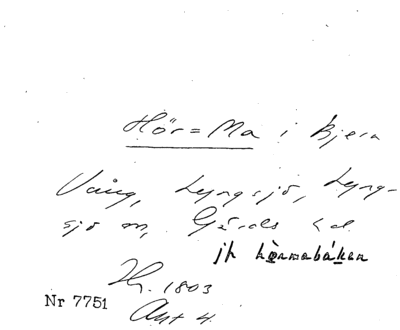 Hör=Ma i Bjera
Vång, Lyngsjö, Lyng-
sjö m, Gärds hd
jfr hörmabáken
Hy. 1803
Nr 7751
Akt 4.